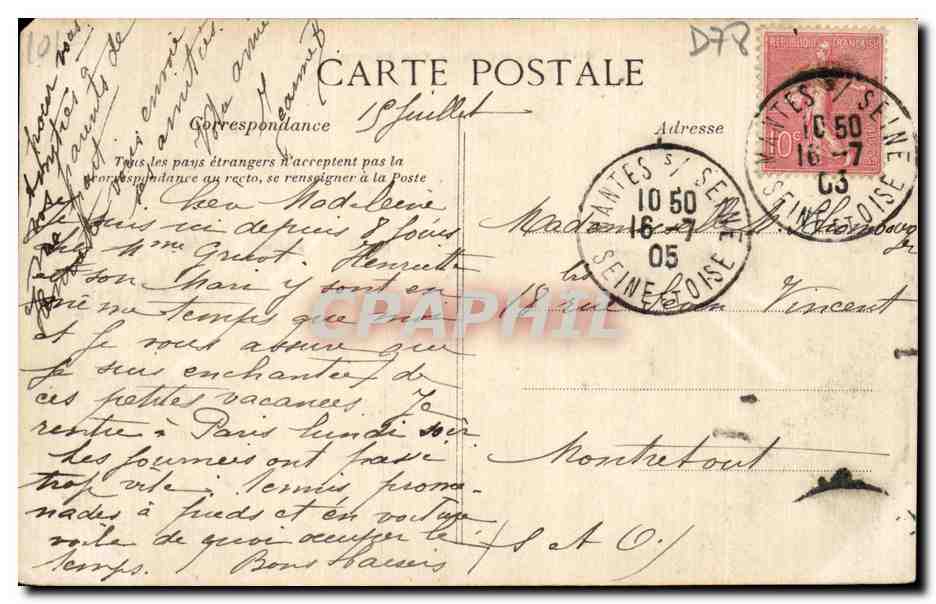 101
D78
CARTE POSTALE
15 Juillet
Correspondance
Tous les pays étrangers n'acceptent pas la
correspondance au recto, se renseigner à la Poste
Adresse
REPUBLIQUE FRANÇAISE
10c
MANTES s/ SEINE
10 50
16 -7
05
SEINE ET OISE
MANTES s/ SEINE
10 50
16 -7
03
SEINE ET OISE
Madeleine
Je suis ici depuis 8 jours
Mme Henriette
et son Mari y sont en
même temps que moi
et Je vous assure que
Je suis enchantée de
ces petites vacances Je
rentre à Paris lundi soir
Les journées ont passé
trop vite. Tennis prome-
nades à pieds et en voiture
voila de quoi occuper le
temps. Bons baisers
pour vous
parents
vous envoie
amitiés.
Votre amie
Mademoiselle M.
18 bis rue Vincent
Montretout
(S et O)
CPAPHIL